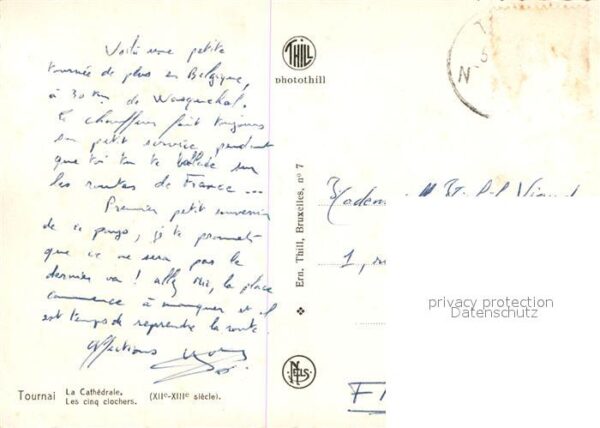 Voilà une petite
tournée de plus en Belgique,
à 30 km de Wasquehal.
Le chauffeur fait toujours
son petit service, pendant
que toi tu te balades sur
les routes de France ...
Premier petit souvenir
de ce pays, je te promets
que ce ne sera pas le
dernier va ! allez oui, la place
commence à manquer et il
est temps de reprendre la route
Affections
Tournai
La Cathédrale.
Les cinq clochers.
(XIIe-XIIIe siècle).
THILL
photothill
Ern. Thill, Bruxelles, nº 7
NELS
N
1,
privacy protection
Datenschutz